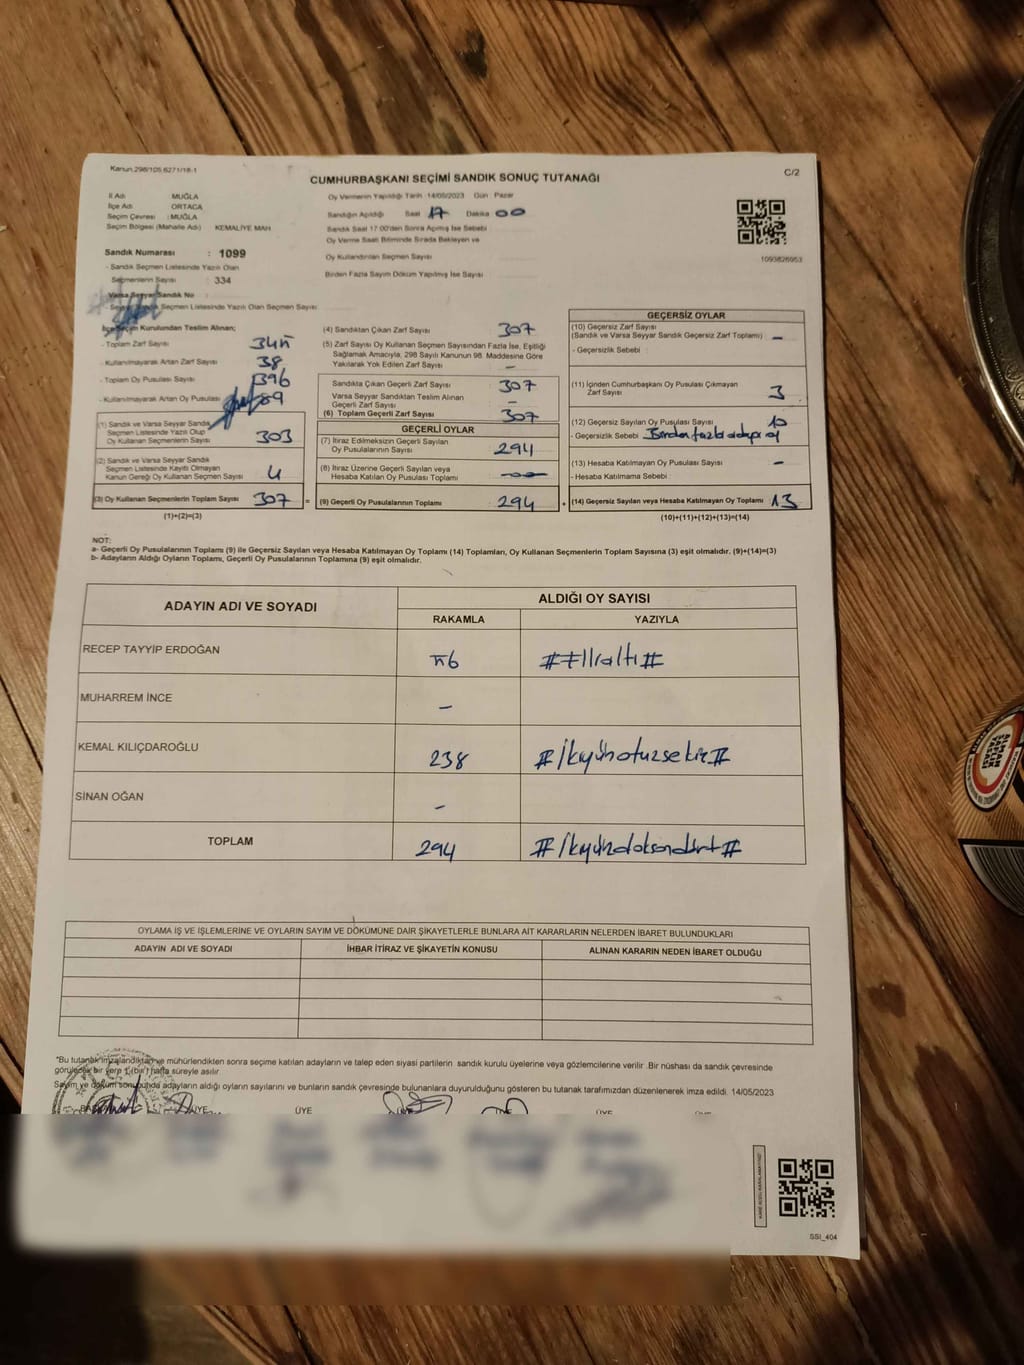 Kanun.298/105,6271/18-1
CUMHURBAŞKANI SEÇİMİ SANDIK SONUÇ TUTANAĞI
C/2
İl Adı MUĞLA
İlçe Adı ORTACA
Seçim Çevresi : MUĞLA
Seçim Bölgesi (Mahalle Adı) KEMALİYE MAH
Oy Vermenin Yapıldığı Tarih :14/05/2023 Gün : Pazar
Sandığın Açıldığı Saat 17 Dakika 00
Sandık Saat 17:00'den Sonra Açılmış İse Sebebi
Oy Verme Saati Bitiminde Sırada Bekleyen ve
Oy Kullandırılan Seçmen Sayısı
Birden Fazla Sayım Döküm Yapılmış İse Sayısı
1093826953
Sandık Numarası : 1099
- Sandık Seçmen Listesinde Yazılı Olan
Seçmenlerin Sayısı : 334
Varsa Seyyar Sandık No
Seçmen Listesinde Yazılı Olan Seçmen Sayısı
İlçe Seçim Kurulundan Teslim Alınan;
- Toplam Zarf Sayısı
- Kullanılmayarak Artan Zarf Sayısı 38
- Toplam Oy Pusulası Sayısı 396
- Kullanılmayarak Artan Oy Pusulası 89
(1) Sandık ve Varsa Seyyar Sandık
Seçmen Listesinde Yazılı Olup
Oy Kullanan Seçmenlerin Sayısı 303
(2) Sandık ve Varsa Seyyar Sandık
Seçmen Listesinde Kayıtlı Olmayan
Kanun Gereği Oy Kullanan Seçmen Sayısı 4
(3) Oy Kullanan Seçmenlerin Toplam Sayısı 307
(1)+(2)=(3)
(4) Sandıktan Çıkan Zarf Sayısı 307
(5) Zarf Sayısı Oy Kullanan Seçmen Sayısından Fazla İse, Eşitliği
Sağlamak Amacıyla, 298 Sayılı Kanunun 98. Maddesine Göre
Yakılarak Yok Edilen Zarf Sayısı -
Sandıkla Çıkan Geçerli Zarf Sayısı 307
Varsa Seyyar Sandıktan Teslim Alınan
Geçerli Zarf Sayısı -
(6) Toplam Geçerli Zarf Sayısı 307
GEÇERLİ OYLAR
(7) İtiraz Edilmeksizin Geçerli Sayılan
Oy Pusulalarının Sayısı 294
(8) İtiraz Üzerine Geçerli Sayılan veya
Hesaba Katılan Oy Pusulası Toplamı
= (9) Geçerli Oy Pusulalarının Toplamı 294
GEÇERSİZ OYLAR
(10) Geçersiz Zarf Sayısı
(Sandık ve Varsa Seyyar Sandık Geçersiz Zarf Toplamı) -
- Geçersizlik Sebebi
(11) İçinden Cumhurbaşkanı Oy Pusulası Çıkmayan
Zarf Sayısı 3
(12) Geçersiz Sayılan Oy Pusulası Sayısı 10
- Geçersizlik Sebebi Birden fazla adaya oy
(13) Hesaba Katılmayan Oy Pusulası Sayısı -
- Hesaba Katılmama Sebebi
+ (14) Geçersiz Sayılan veya Hesaba Katılmayan Oy Toplamı 13
(10)+(11)+(12)+(13)=(14)
NOT:
a- Geçerli Oy Pusulalarının Toplamı (9) ile Geçersiz Sayılan veya Hesaba Katılmayan Oy Toplamı (14) Toplamları, Oy Kullanan Seçmenlerin Toplam Sayısına (3) eşit olmalıdır. (9)+(14)=(3)
b- Adayların Aldığı Oyların Toplamı, Geçerli Oy Pusulalarının Toplamına (9) eşit olmalıdır.
ADAYIN ADI VE SOYADI
ALDIĞI OY SAYISI
RAKAMLA YAZIYLA
RECEP TAYYİP ERDOĞAN 56 ##Elli altı#
MUHARREM İNCE -
KEMAL KILIÇDAROĞLU 238 #İkiyüzotuzsekiz#
SİNAN OĞAN -
TOPLAM 294 #İkiyüzdoksandört#
OYLAMA İŞ VE İŞLEMLERİNE VE OYLARIN SAYIM VE DÖKÜMÜNE DAİR ŞİKAYETLERLE BUNLARA AİT KARARLARIN NELERDEN İBARET BULUNDUKLARI
ADAYIN ADI VE SOYADI İHBAR İTİRAZ VE ŞİKAYETİN KONUSU ALINAN KARARIN NEDEN İBARET OLDUĞU
"Bu tutanak imzalandıktan ve mühürlendikten sonra seçime katılan adayların ve talep eden siyasi partilerin sandık kurulu üyelerine veya gözlemcilerine verilir. Bir nüshası da sandık çevresinde
görülecek bir yere 1 (bir) hafta süreyle asılır.
Sayım ve döküm sonucunda adayların aldığı oyların sayılarını ve bunların sandık çevresinde bulunanlara duyurulduğunu gösteren bu tutanak tarafımızdan düzenlenerek imza edildi. 14/05/2023
ÜYE ÜYE ÜYE ÜYE ÜYE
SSI_404